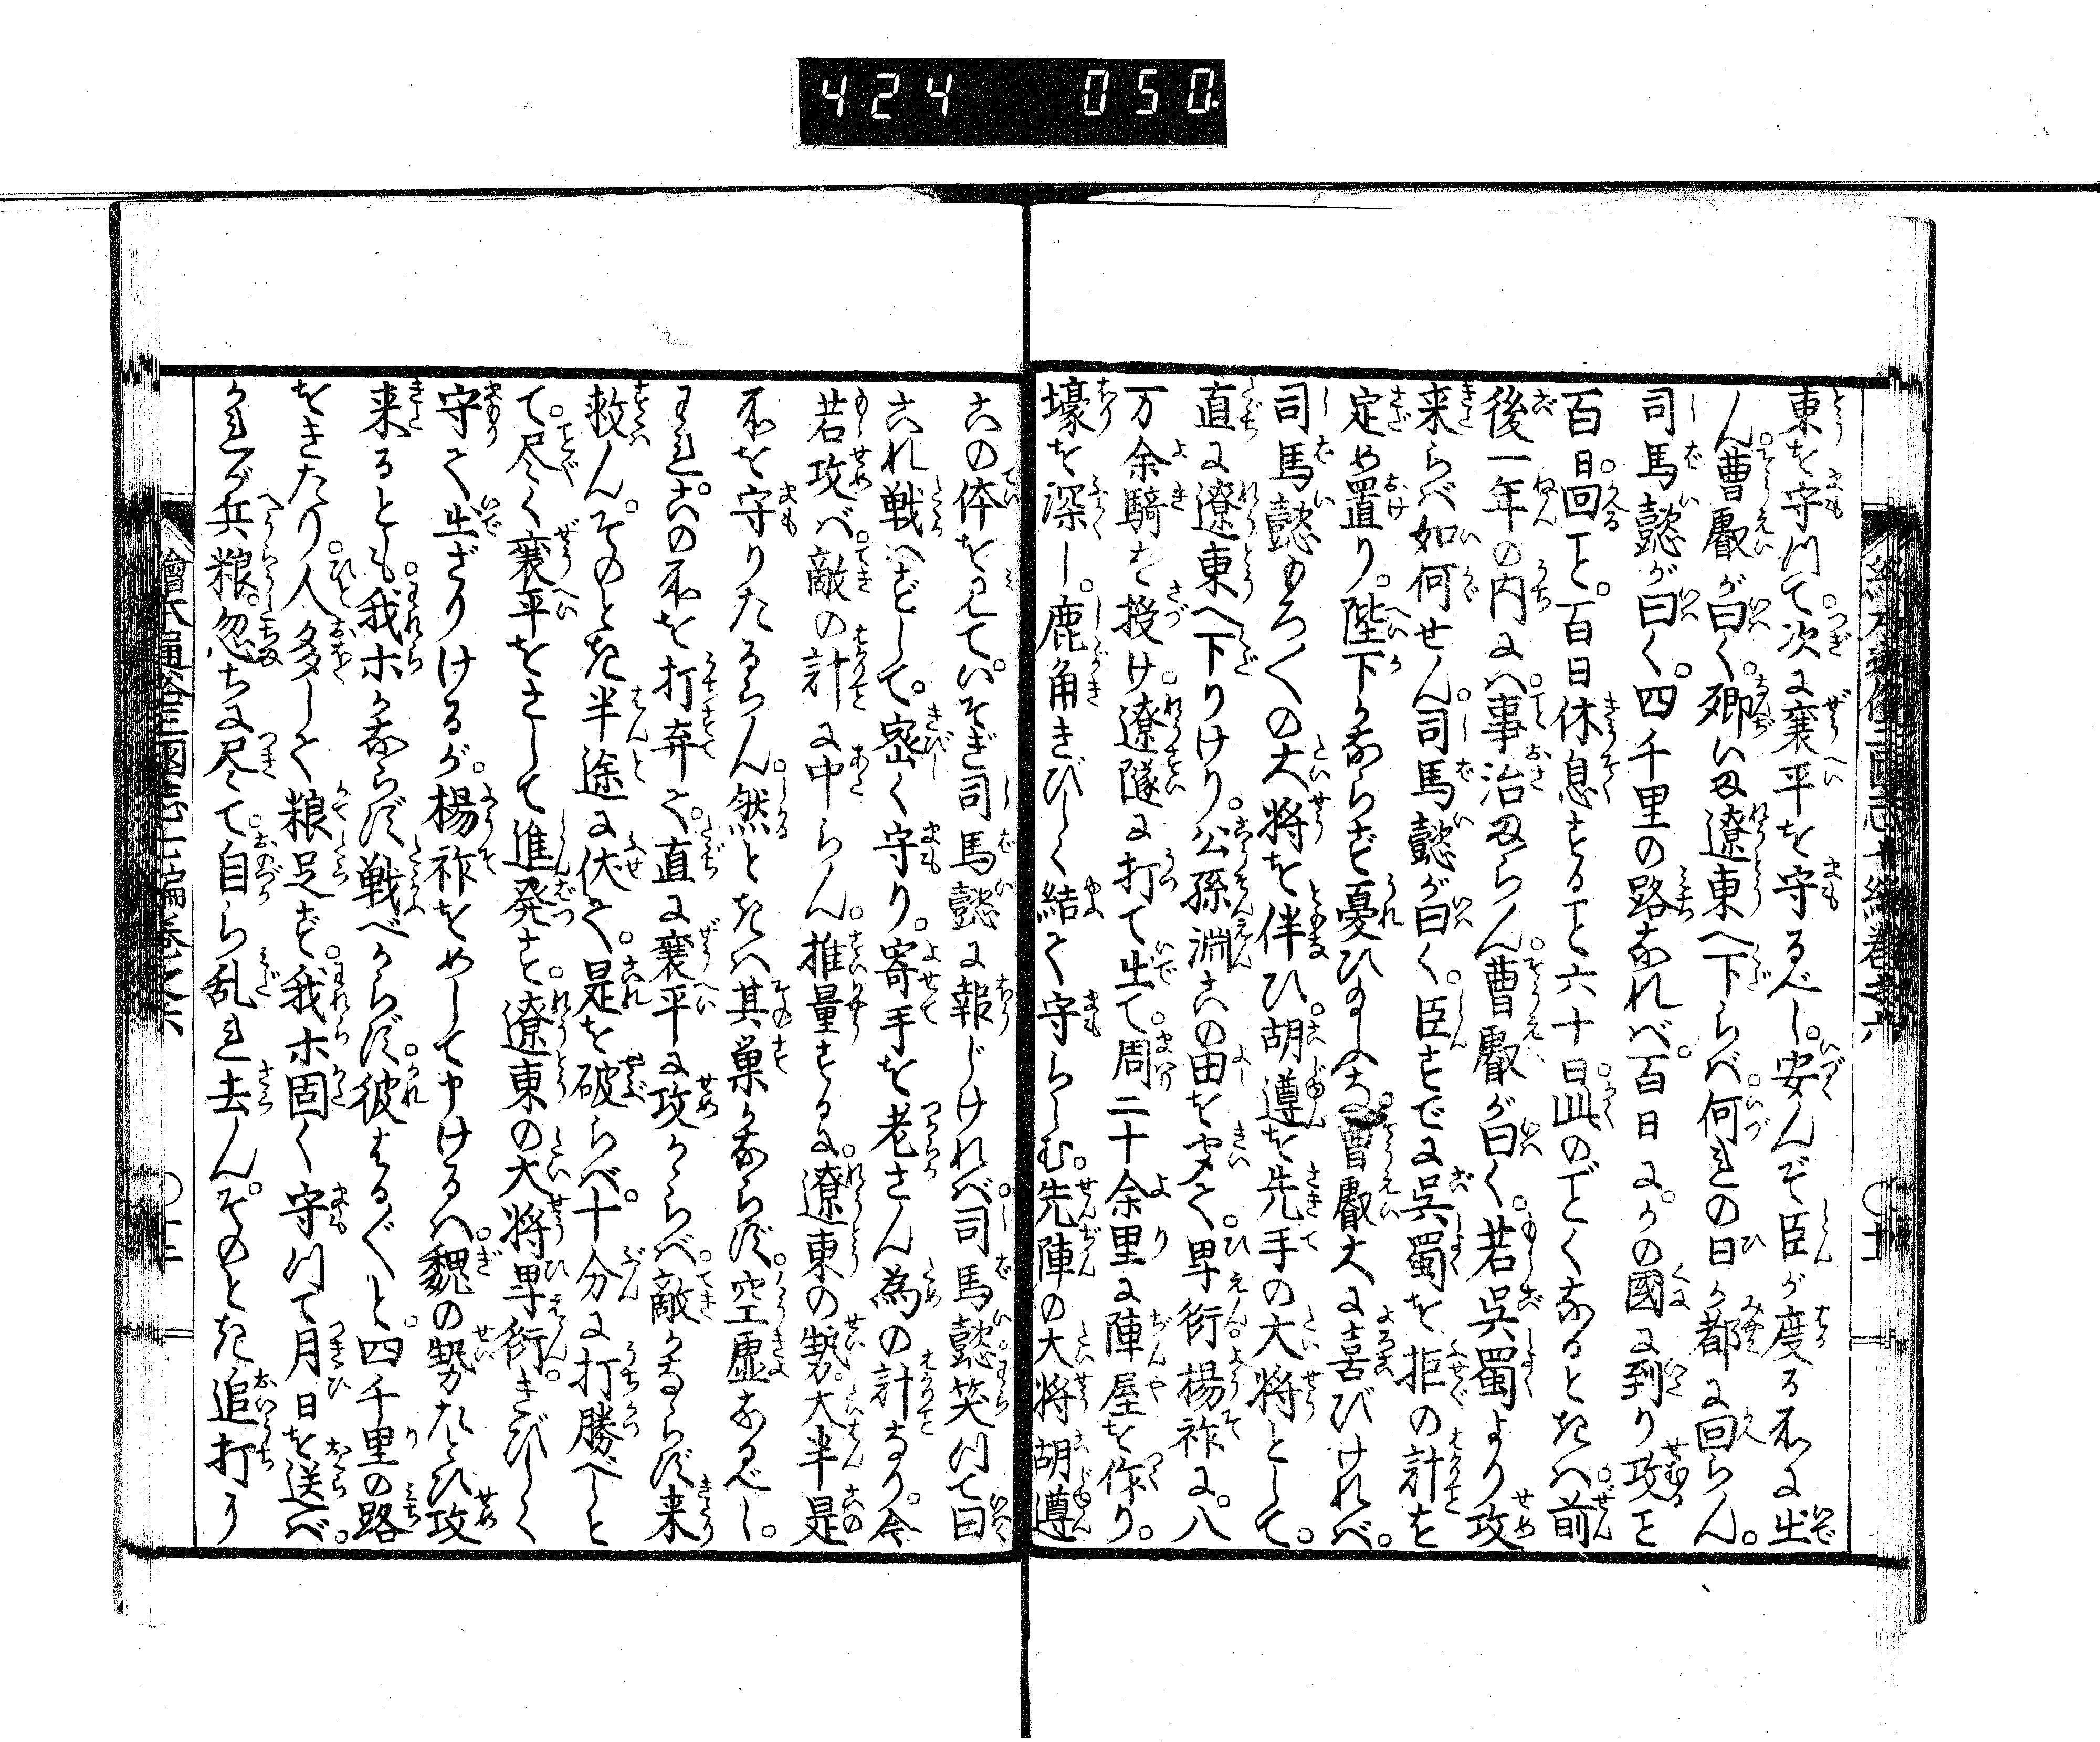 424 050
東を守つて次に襄平を守るべし。安んぞ臣が度る所に出
ん。曹叡が曰く。卿いま遼東へ下らば。何れの日か都に回らん。
司馬懿が曰く。四千里の路なれば。百日にかの國に到り攻ること
百日。回ること。百日休息すること六十日。此のごとくなるときは。前
後一年の内には。事治まらん。曹叡が曰く。若呉蜀より攻
来らば如何せん。司馬懿が曰く。臣すでに呉蜀を拒の計を
定め置り。陛下かならず憂ひ玉ふな。曹叡大に喜びければ。
司馬懿もろ〱の大将を伴ひ。胡遵を先手の大将として。
直に遼東へ下りけり。公孫淵この由を聞て。卑衍。楊祚に。八
万余騎を授け。遼隧に打て出て。周二十余里に陣屋を作り。
壕を深し。鹿角きびしく結て守らしむ。先陣の大将胡遵
この体を見て。いそぎ司馬懿に報じければ。司馬懿。笑つて曰
これ戦へずして。密く守り。寄手を老さん為の計なり。今
若攻ば。敵の計に中らん。推量するに。遼東の勢。大半是
所を守りたるらん。然ときは其巣かならず。空虚なるべし。
われ。この所を打弃て。直に襄平に攻かゝらば。敵かならず来
救ん。そのとき半途に伏て。是を破らば。十分に打勝べしと
て。尽く襄平をさして進発す。遼東の大将卑衍。きびしく
守て出ざりけるが。楊祚をめして申けるは。魏の勢たとひ攻
来るとも。我等かならず戦べからず。彼はる〲と。四千里の路
をきたり。人多しく粮足ず。我等固く守つて月日を送ば。
かれが兵粮。忽ちに尽て。自ら乱れ去ん。そのとき追打う
繪本通俗三國志七編巻之六